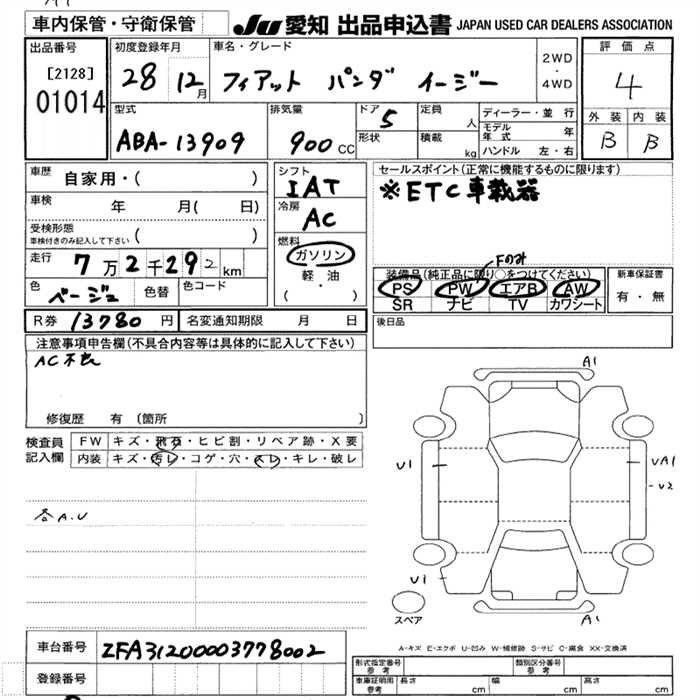 車内保管・守衛保管 JU 愛知 出品申込書 JAPAN USED CAR DEALERS ASSOCIATION
出品番号 初度登録年月 車名・グレード 2WD ・ 4WD 評価点
[2128] 28 12月 フィアット パンダ イージー 4
01014 型式 排気量 ドア 5 定員 人 ディーラー・並行 外装 内装
ABA-13909 900cc 形状 積載 kg モデル年式 年 B B
ハンドル 左・右
車歴 自家用・( ) シフト IAT セールスポイント(正常に機能するものに限ります)
車検 年 月( 日) 冷房 AC ※ETC車載器
受検形態 ( )
車検付きのみ記入して下さい
走行 7万2千292km 燃料 ガソリン Fのみ
軽・油 装備品(純正品に限り○をつけてください) 新車保証書
色 ベージュ 色替 色コード ( ) PS PW エアB AW 有・無
SR ナビ TV カワシート
R券 13780円 名変通知期限 月 日 後日品
注意事項申告欄(不具合内容等は具体的に記入して下さい)
AC不良
修復歴 有 (箇所 )
検査員記入欄 FW キズ・飛石・ヒビ割・リペア跡・X要
内装 キズ・汚レ・コゲ・穴・スレ・キレ・破レ
各A.U
A1
U1 UA1
-U2
U1
スペア A1
A-キズ E-エクボ U-凹み W-補修跡 S-サビ C-腐食 XX-交換済
車台番号 ZFA31200003778002
登録番号
形式指定番号 参考 類別区分番号 参考
車庫証明用 参考 長さ cm 幅 cm 高さ cm